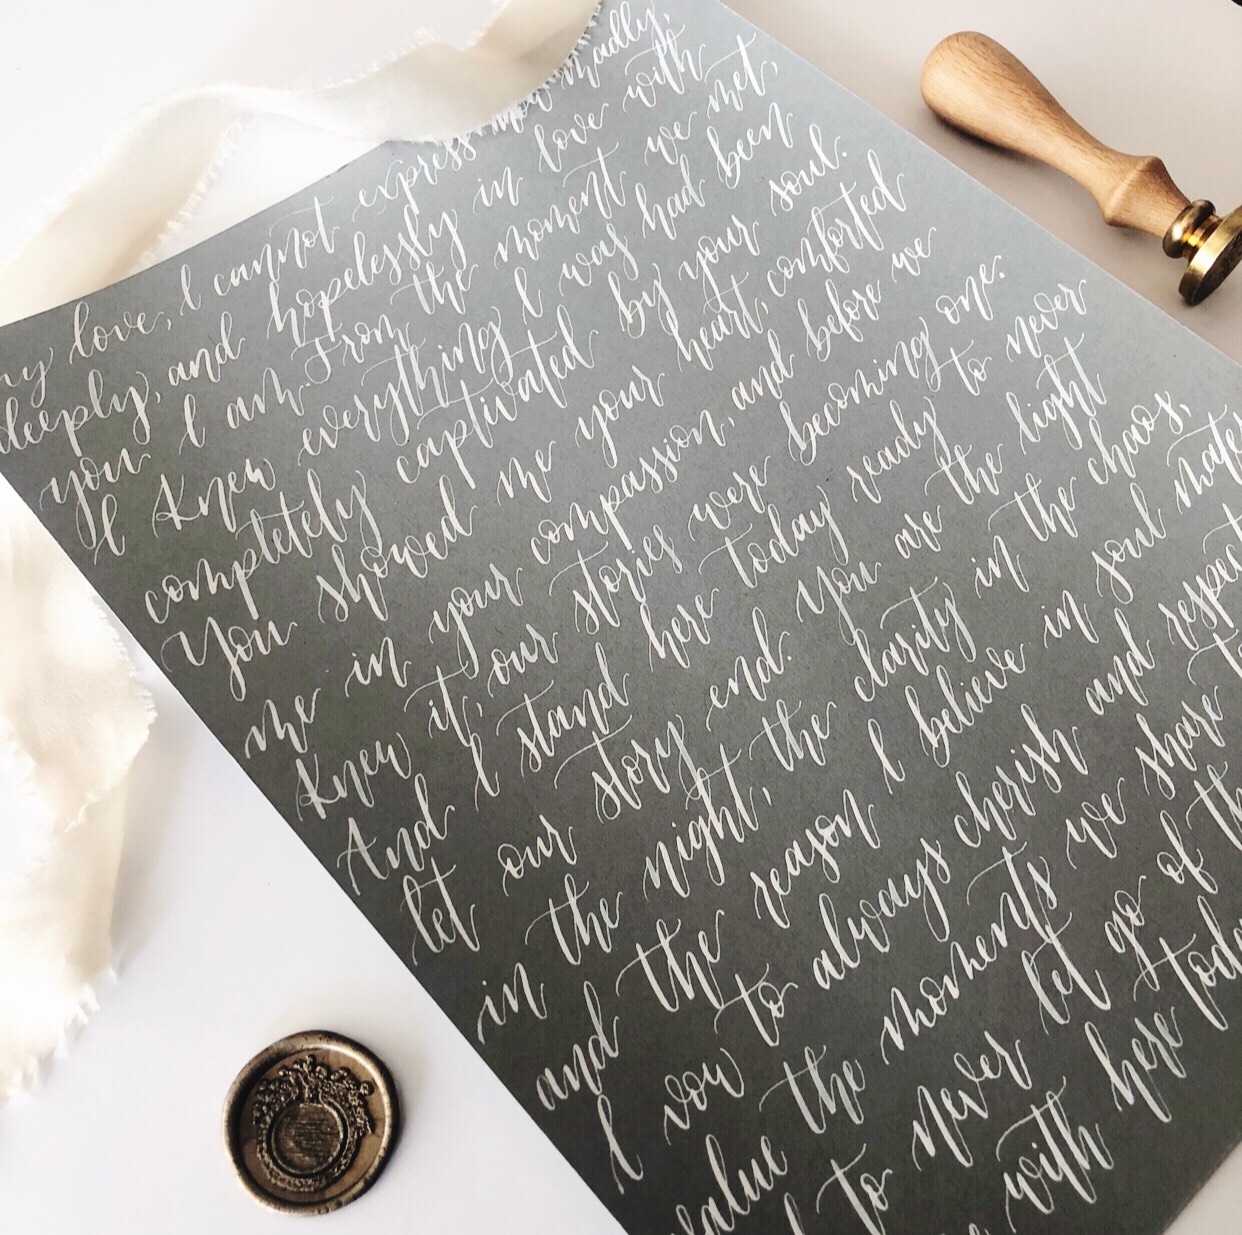 my love, I cannot express how madly,
deeply, and hopelessly in love with
you I am. From the moment we met,
I knew everything I was had been
completely captivated by your soul.
You showed me your heart, comforted
me in your compassion, and before we
knew it, our stories were becoming one.
And I stand here today ready to never
let our story end. You are the light
in the night, the clarity in the chaos,
and the reason I believe in soul mates
I vow to always cherish and respect
value the moments we share to
to never let go of th
with here today